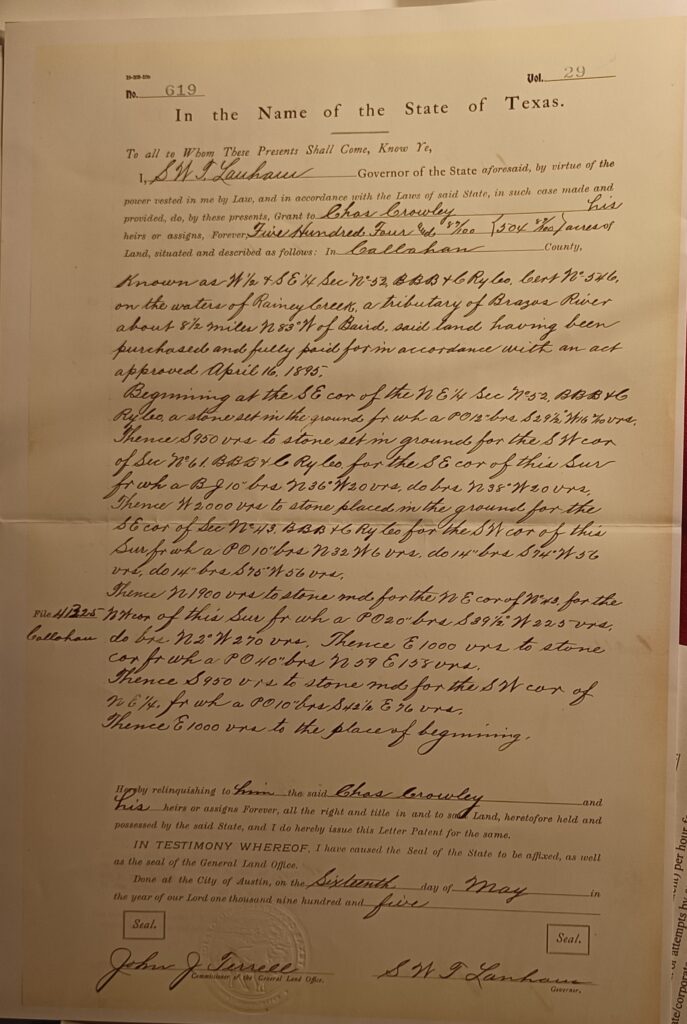 No. 619 Vol. 29
In the Name of the State of Texas.
To all to Whom These Presents Shall Come, Know Ye,
I, S W T. Lanham Governor of the State aforesaid, by virtue of the
power vested in me by Law, and in accordance with the Laws of said State, in such case made and
provided, do, by these presents, Grant to Chas Crowley his
heirs or assigns, Forever, Five Hundred Four and 87/100 (504 87/100) acres of
Land, situated and described as follows: In Callahan County,
Known as W 1/2 & S E 1/4 Sec No 52, B B B & C Ry Co, Cert No 546,
on the waters of Rainey Creek, a tributary of Brazos River
about 8 1/2 miles N 83° W of Baird, said land having been
purchased and fully paid for in accordance with an act
approved April 16, 1895,
Beginning at the S E cor of the N E 1/4 Sec No 52, B B B & C
Ry Co, a stone set in the ground fr wh a P O 12" brs S 29 1/2° W 16 vrs,
Thence S 950 vrs to stone set in ground for the S W cor
of Sec No 61, B B B & C Ry Co, for the S E cor of this Sur
fr wh a B J 10" brs N 36° W 20 vrs, do brs N 38° W 20 vrs,
Thence W 2000 vrs to stone placed in the ground for the
S E cor of Sec No 43, B B B & C Ry Co for the S W cor of this
Sur fr wh a P O 10" brs N 32 W 6 vrs, do 14" brs S 74° W 56
vrs, do 14" brs S 75° W 56 vrs,
Thence N 1900 vrs to stone md for the N E cor of No 43, for the
File 41325 N W cor of this Sur fr wh a P O 20" brs S 39 1/2° W 225 vrs,
Callahan do brs N 2° W 270 vrs, Thence E 1000 vrs to stone
cor fr wh a P O 40" brs N 59 E 158 vrs,
Thence S 950 vrs to stone md for the S W cor of
N E 1/4, fr wh a P O 10" brs S 42 1/2 E 76 vrs,
Thence E 1000 vrs to the place of beginning,
Hereby relinquishing to him the said Chas Crowley and
his heirs or assigns Forever, all the right and title in and to said Land, heretofore held and
possessed by the said State, and I do hereby issue this Letter Patent for the same.
IN TESTIMONY WHEREOF, I have caused the Seal of the State to be affixed, as well
as the seal of the General Land Office.
Done at the City of Austin, on the Sixteenth day of May in
the year of our Lord one thousand nine hundred and five
Seal. Seal.
John J Terrell S W T Lanham
Commissioner of the General Land Office. Governor.